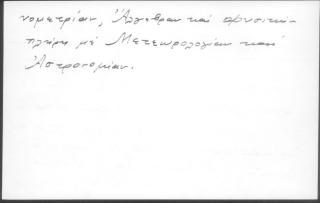 νομετρίαν, Ἄλγεβραν καί Φυσικήν
πλήρη μέ Μετεωρολογίαν καί
Ἀστρονομίαν.